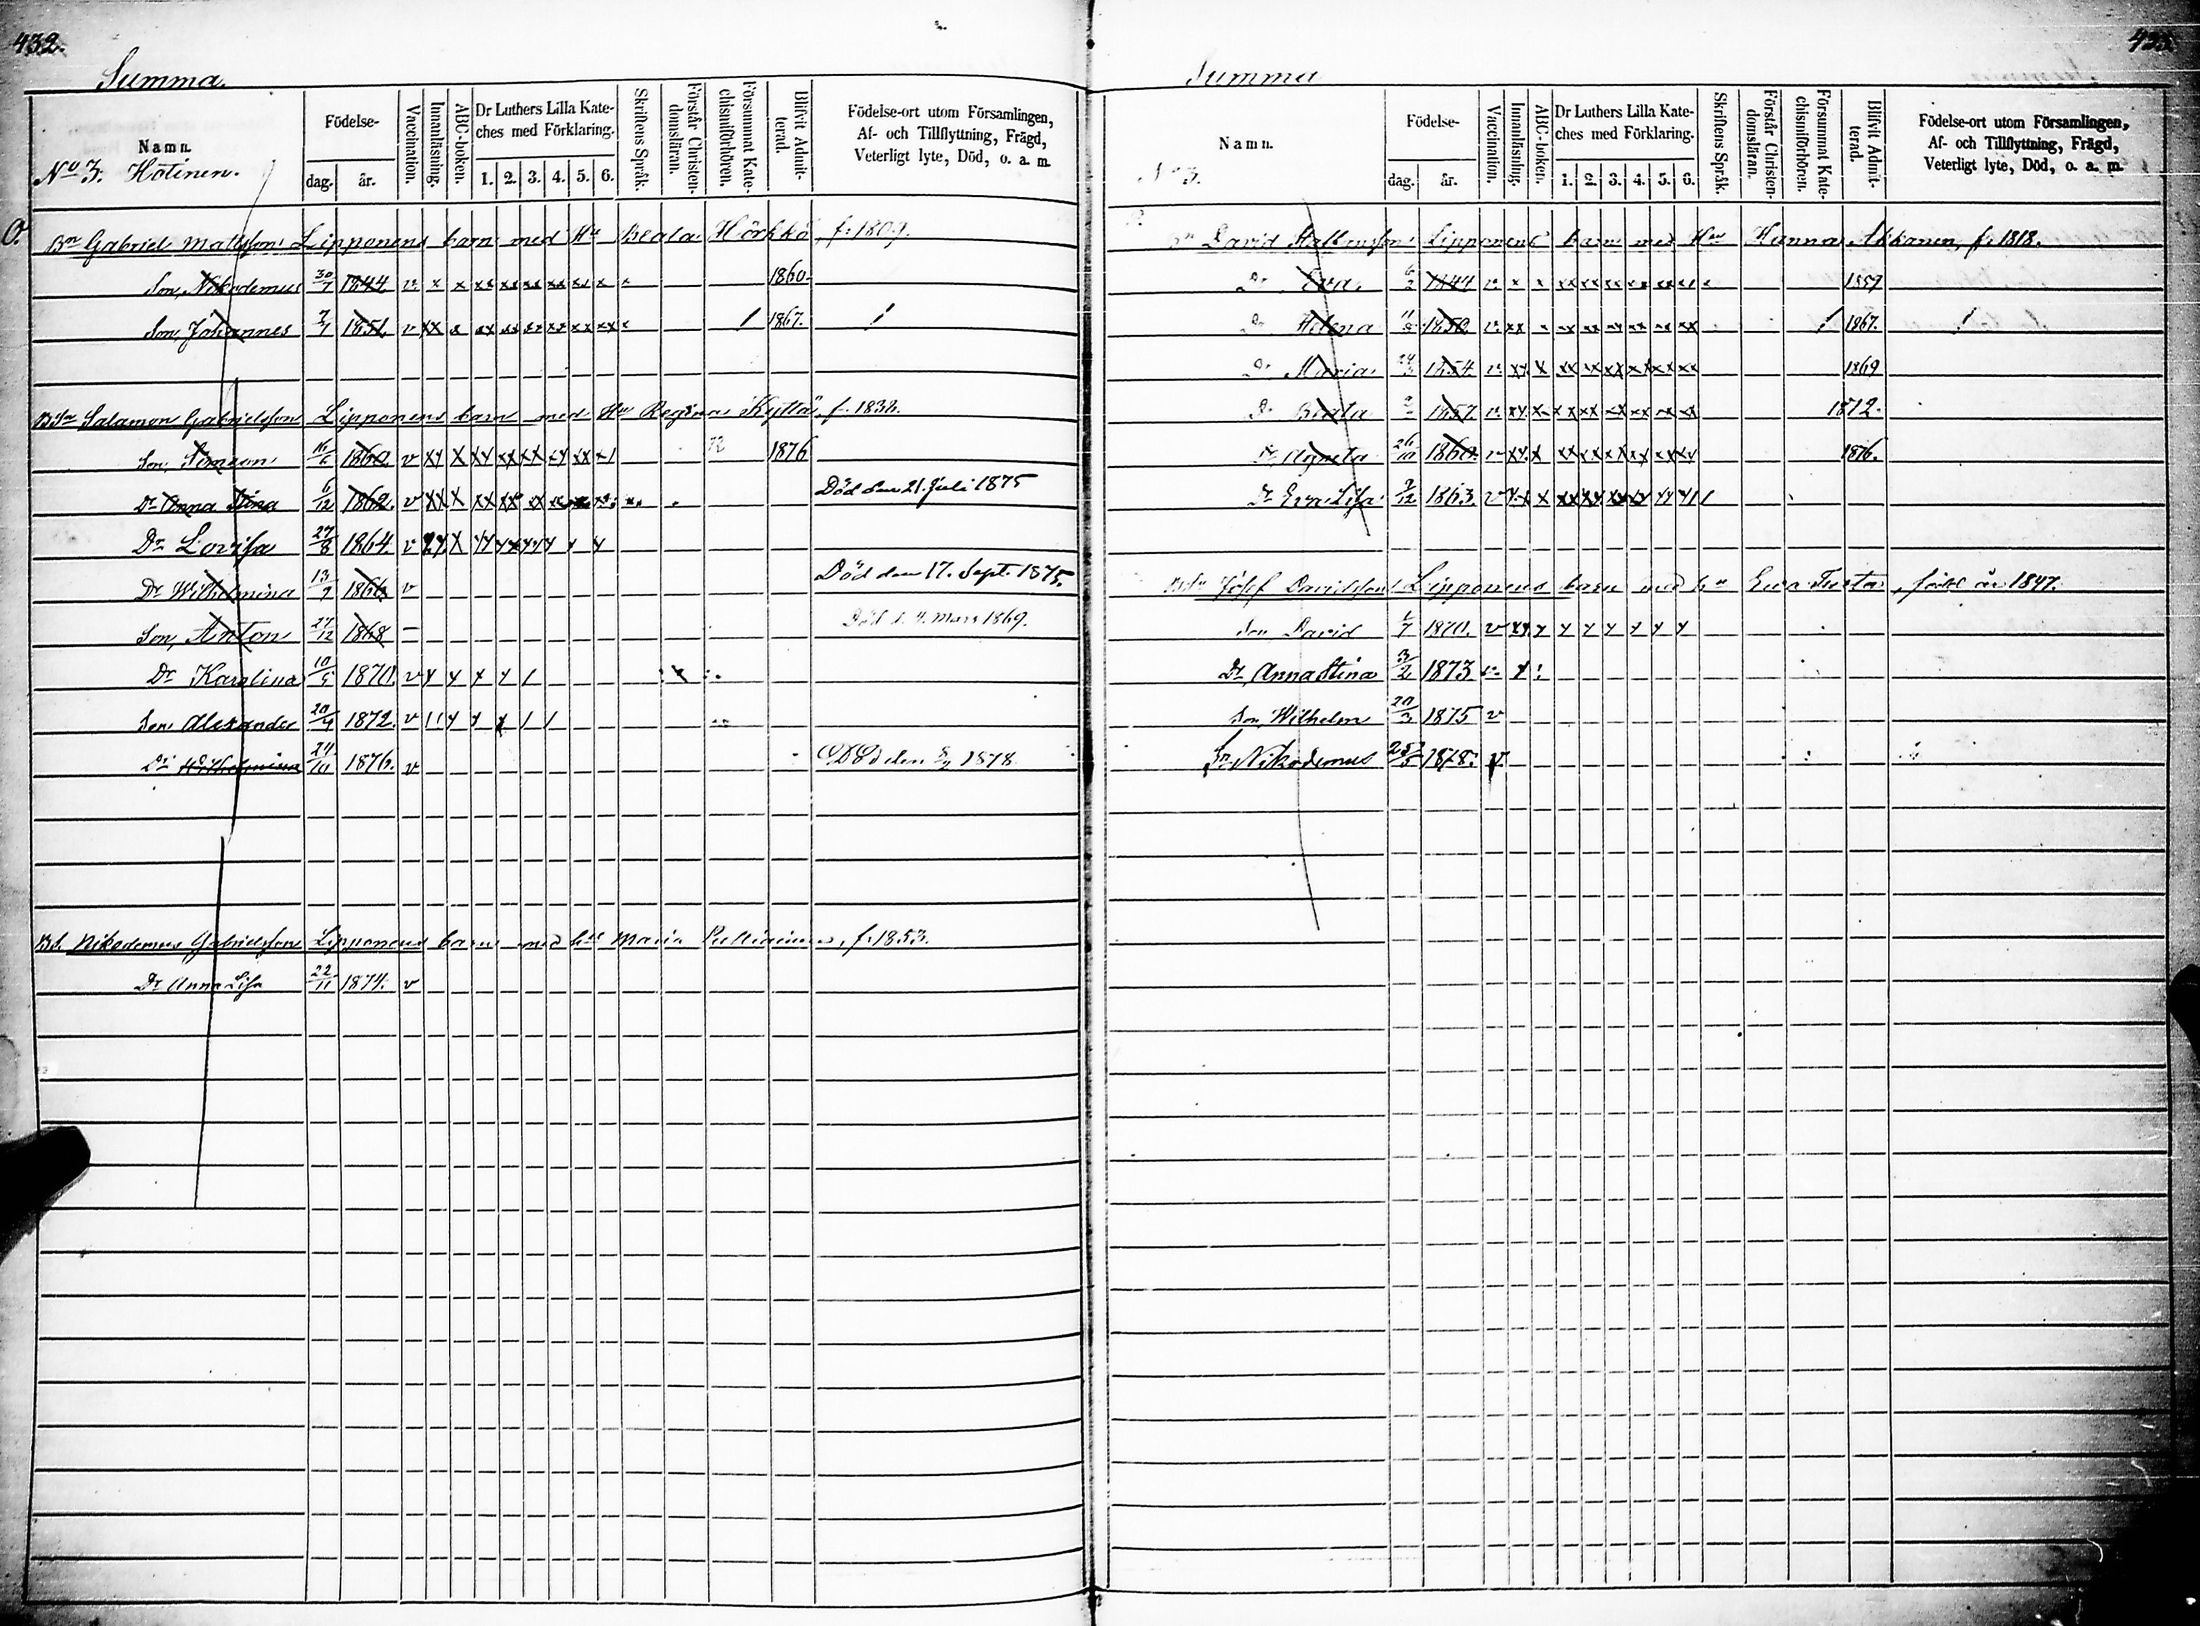 432.
Summa.
Namn.
No 3. Hötinen.
Födelse-
dag. år.
Vaccination.
Innanläsning.
ABC-boken.
Dr Luthers Lilla Kate-
ches med Förklaring.
1. 2. 3. 4. 5. 6.
Skriftens Språk.
Förstår Christen-
domsläran.
Försummat Kate-
chismiförhören.
Blifvit Admit-
terad.
Födelse-ort utom Församlingen,
Af- och Tillflyttning, Frägd,
Veterligt lyte, Död, o. a. m.
Bn Gabriel Mattsson Lipponens barn med Hu Beata Hörkkö, f. 1809.
Son, Nikodemus 30/7 1844 v x x xx xx xx xx xx x x 1860.
Son, Johannes 7/7 1851 v xx x xx xx xx xx xx xx x / 1867. /
BSn Salamon Gabrielsson Lipponens barn med Hu Regina Kyttä, f. 1838.
Son, Simeon 16/6 1860 v xx x xx xx xx xx xx x/ 1876
Dr Anna Stina 6/12 1862. v xx x xx xx xx xx Död den 21. Juli 1875
Dr Lovisa 27/8 1864. v xx x xx xx xx x x x
Dr Wilhelmina 13/9 1866 v Död den 17. Sept. 1875.
Son, Anton 27/12 1868 – Död d. 4. Mars 1869.
Dr Karolina 10/5 1870. v x x x x / x
Son Alexander 20/4 1872. v // x x x / /
Dr Wilhelmina 24/10 1876. v Död den 1878
Bs. Nikodemus Gabrielsson Lipponens barn med Maria f. 1853.
Dr Anna Lisa 22/11 1874. v
Summa
Namn.
No 3.
Födelse-
dag. år.
Vaccination.
Innanläsning.
ABC-boken.
Dr Luthers Lilla Kate-
ches med Förklaring.
1. 2. 3. 4. 5. 6.
Skriftens Språk.
Förstår Christen-
domsläran.
Försummat Kate-
chismiförhören.
Blifvit Admit-
terad.
Födelse-ort utom Församlingen,
Af- och Tillflyttning, Frägd,
Veterligt lyte, Död, o. a. m.
Bn David Lipponens barn med Hu Hanna Akkanen, f. 1818.
Dr Eva 6/2 1844 v x x xx xx xx xx xx 1859
Dr Helena 1850 v xx x xx xx xx xx xx xx / 1867. /
Dr Maria 1854 v xx x xx xx xx xx xx xx 1869
Dr Beata 1857. v xx x xx xx xx xx xx 1872.
Dr Agneta 26/10 1860. v xx x xx xx xx xx xx xx 1876.
Dr Eva Lisa 9/12 1863. v xx x xx xx xx xx xx x/ /
BSn Josef Davidsson Lipponens barn med hu Eva Turta, född år 1847.
Son David 1/7 1870. v xx x x x x x x x
Dr, Anna Stina 3/2 1873 v x
Son, Wilhelm 20/3 1875 v
Sn Nikodemus 25/5 1878. v